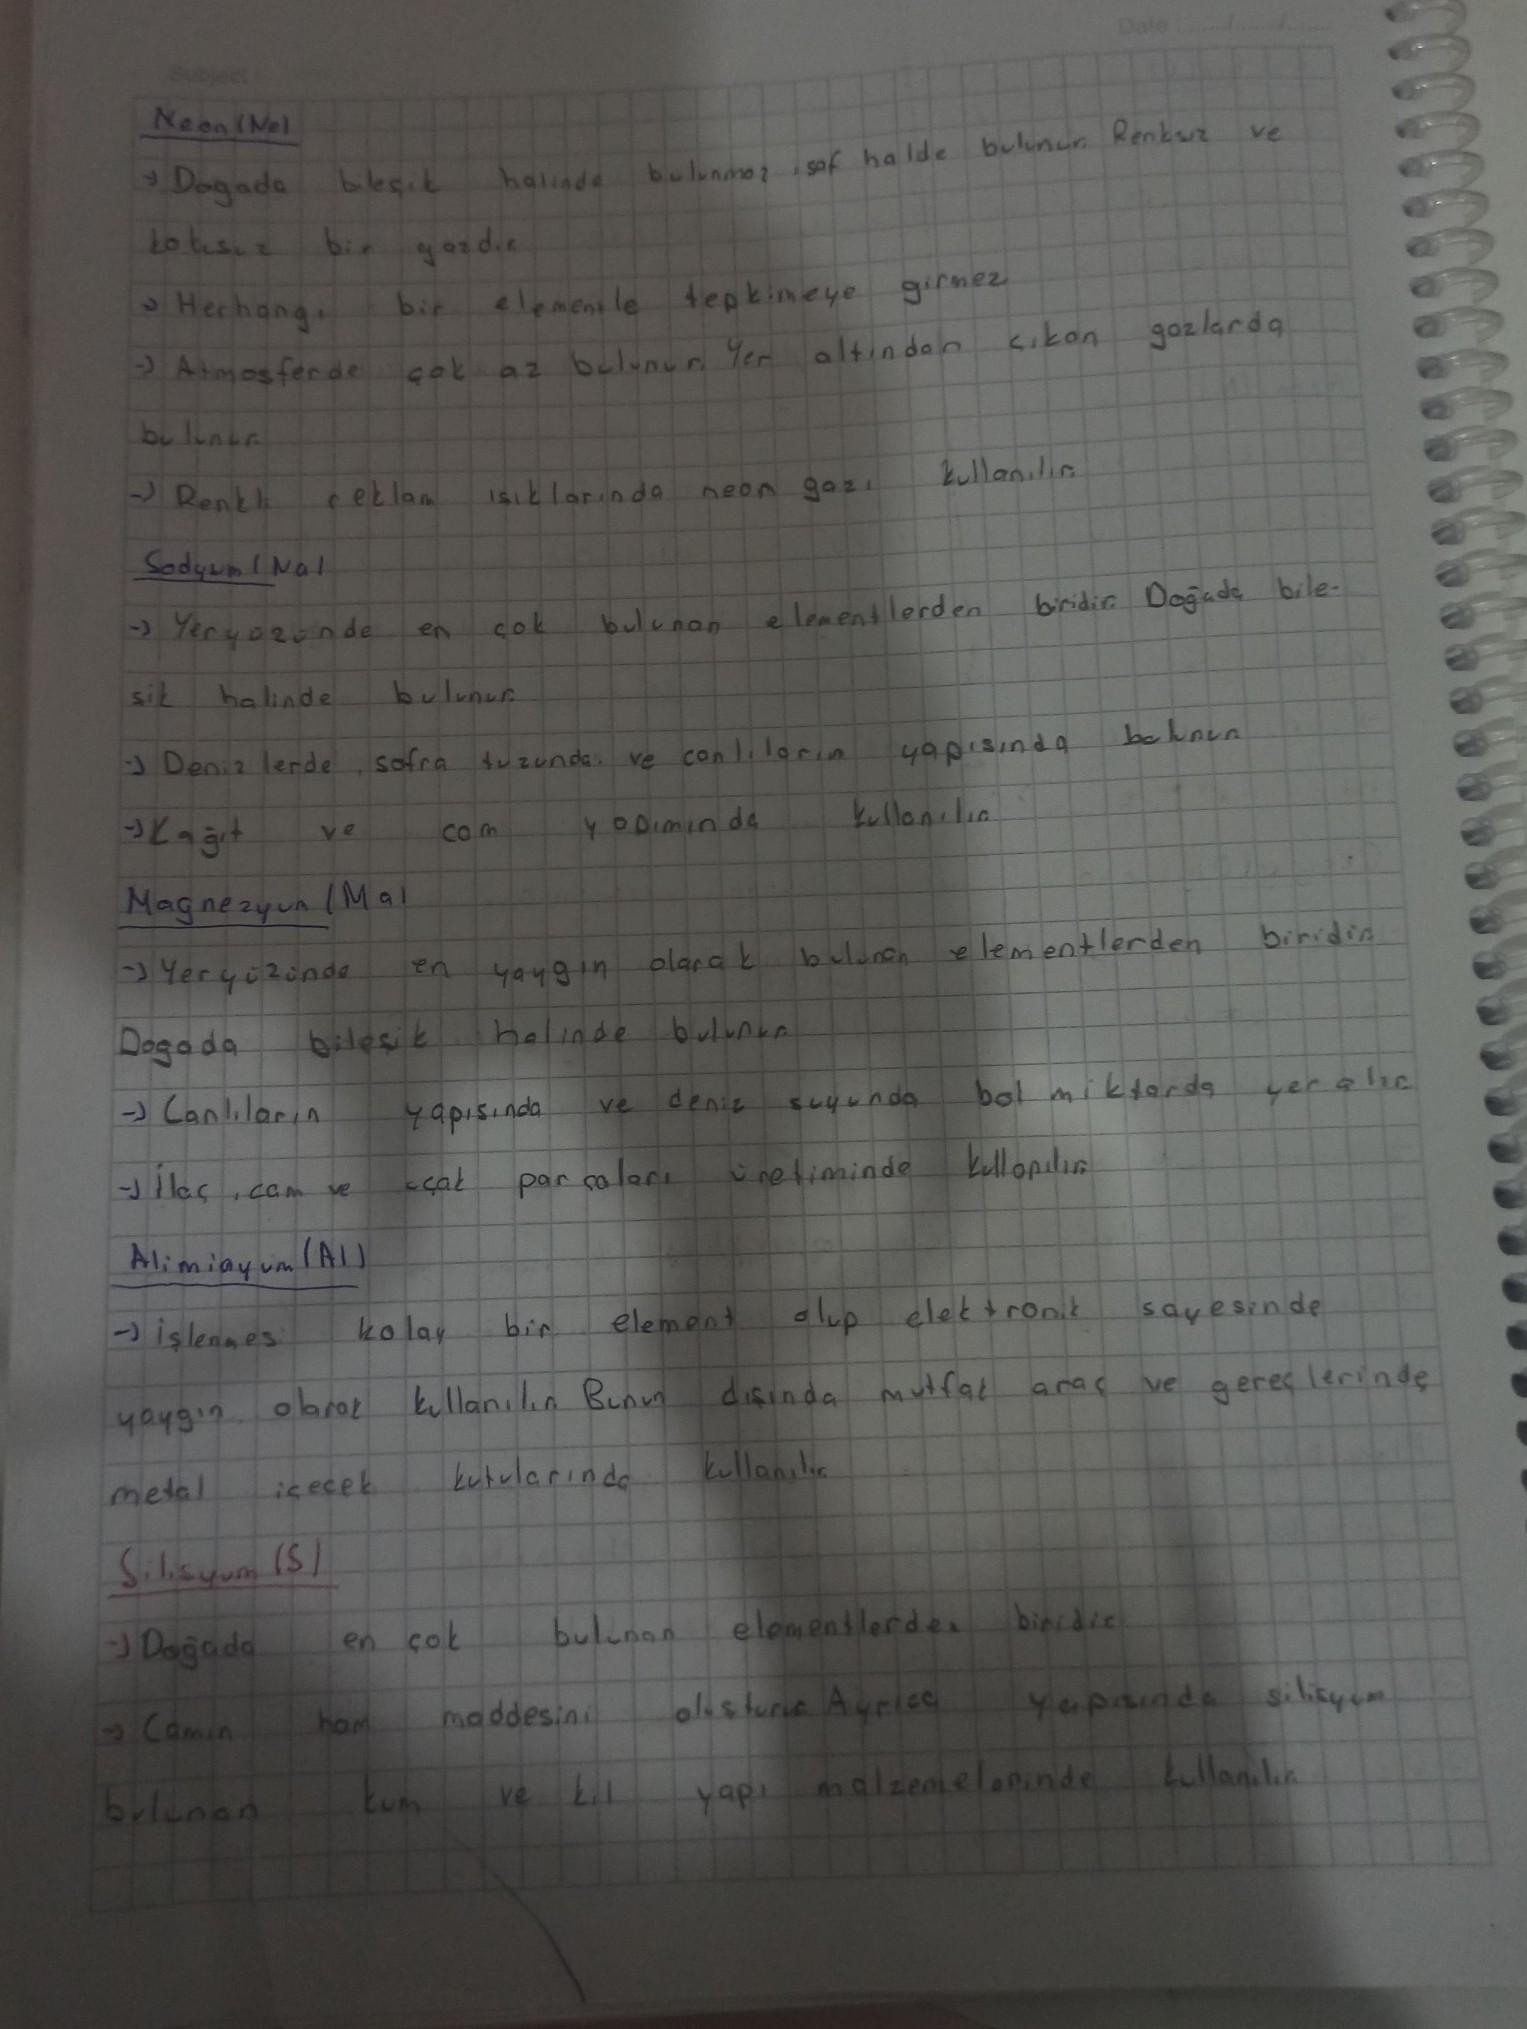 Date
Subject
Neon (Ne)
→ Dogada bileşik halinde bulunmaz, saf halde bulunur. Renksiz ve
kokusuz bir gazdır
→ Herhangi bir elementle tepkimeye girmez
→ Atmosferde çok az bulunur. Yer altından çıkan gazlarda
bulunur
→ Renkli reklam ışıklarında neon gazı kullanılır
Sodyum (Na)
→ Yeryüzünde en çok bulunan elementlerden biridir. Doğada bile-
sik halinde bulunur
→ Denizlerde, sofra tuzunda ve canlıların yapısında bulunur
→ Kağıt ve cam yapımında kullanılır
Magnezyum (Ma)
→ Yeryüzünde en yaygın olarak bulunan elementlerden biridir
Dogada bileşik halinde bulunur
→ Canlıların yapısında ve deniz suyunda bol miktarda yer alır
→ İlaç, cam ve uçak parçaları üretiminde kullanılır
Alimiayum (Al)
→ işlenmesi kolay bir element olup elektronik sayesinde
yaygın olarak kullanılır Bunun dışında mutfak araç ve gereçlerinde
metal içecek kutularında kullanılır
Silisyum (S)
→ Doğada en çok bulunan elementlerden biridir
→ Camın ham maddesini oluşturur Ayrıca yapısında silisyum
bulunan kum ve kil yapı malzemelerinde kullanılır